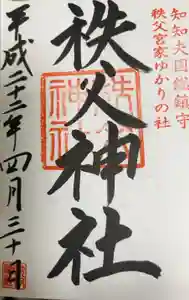 知知夫国総鎮守
秩父宮家ゆかりの社
秩父神社
平成二十二年四月三十日